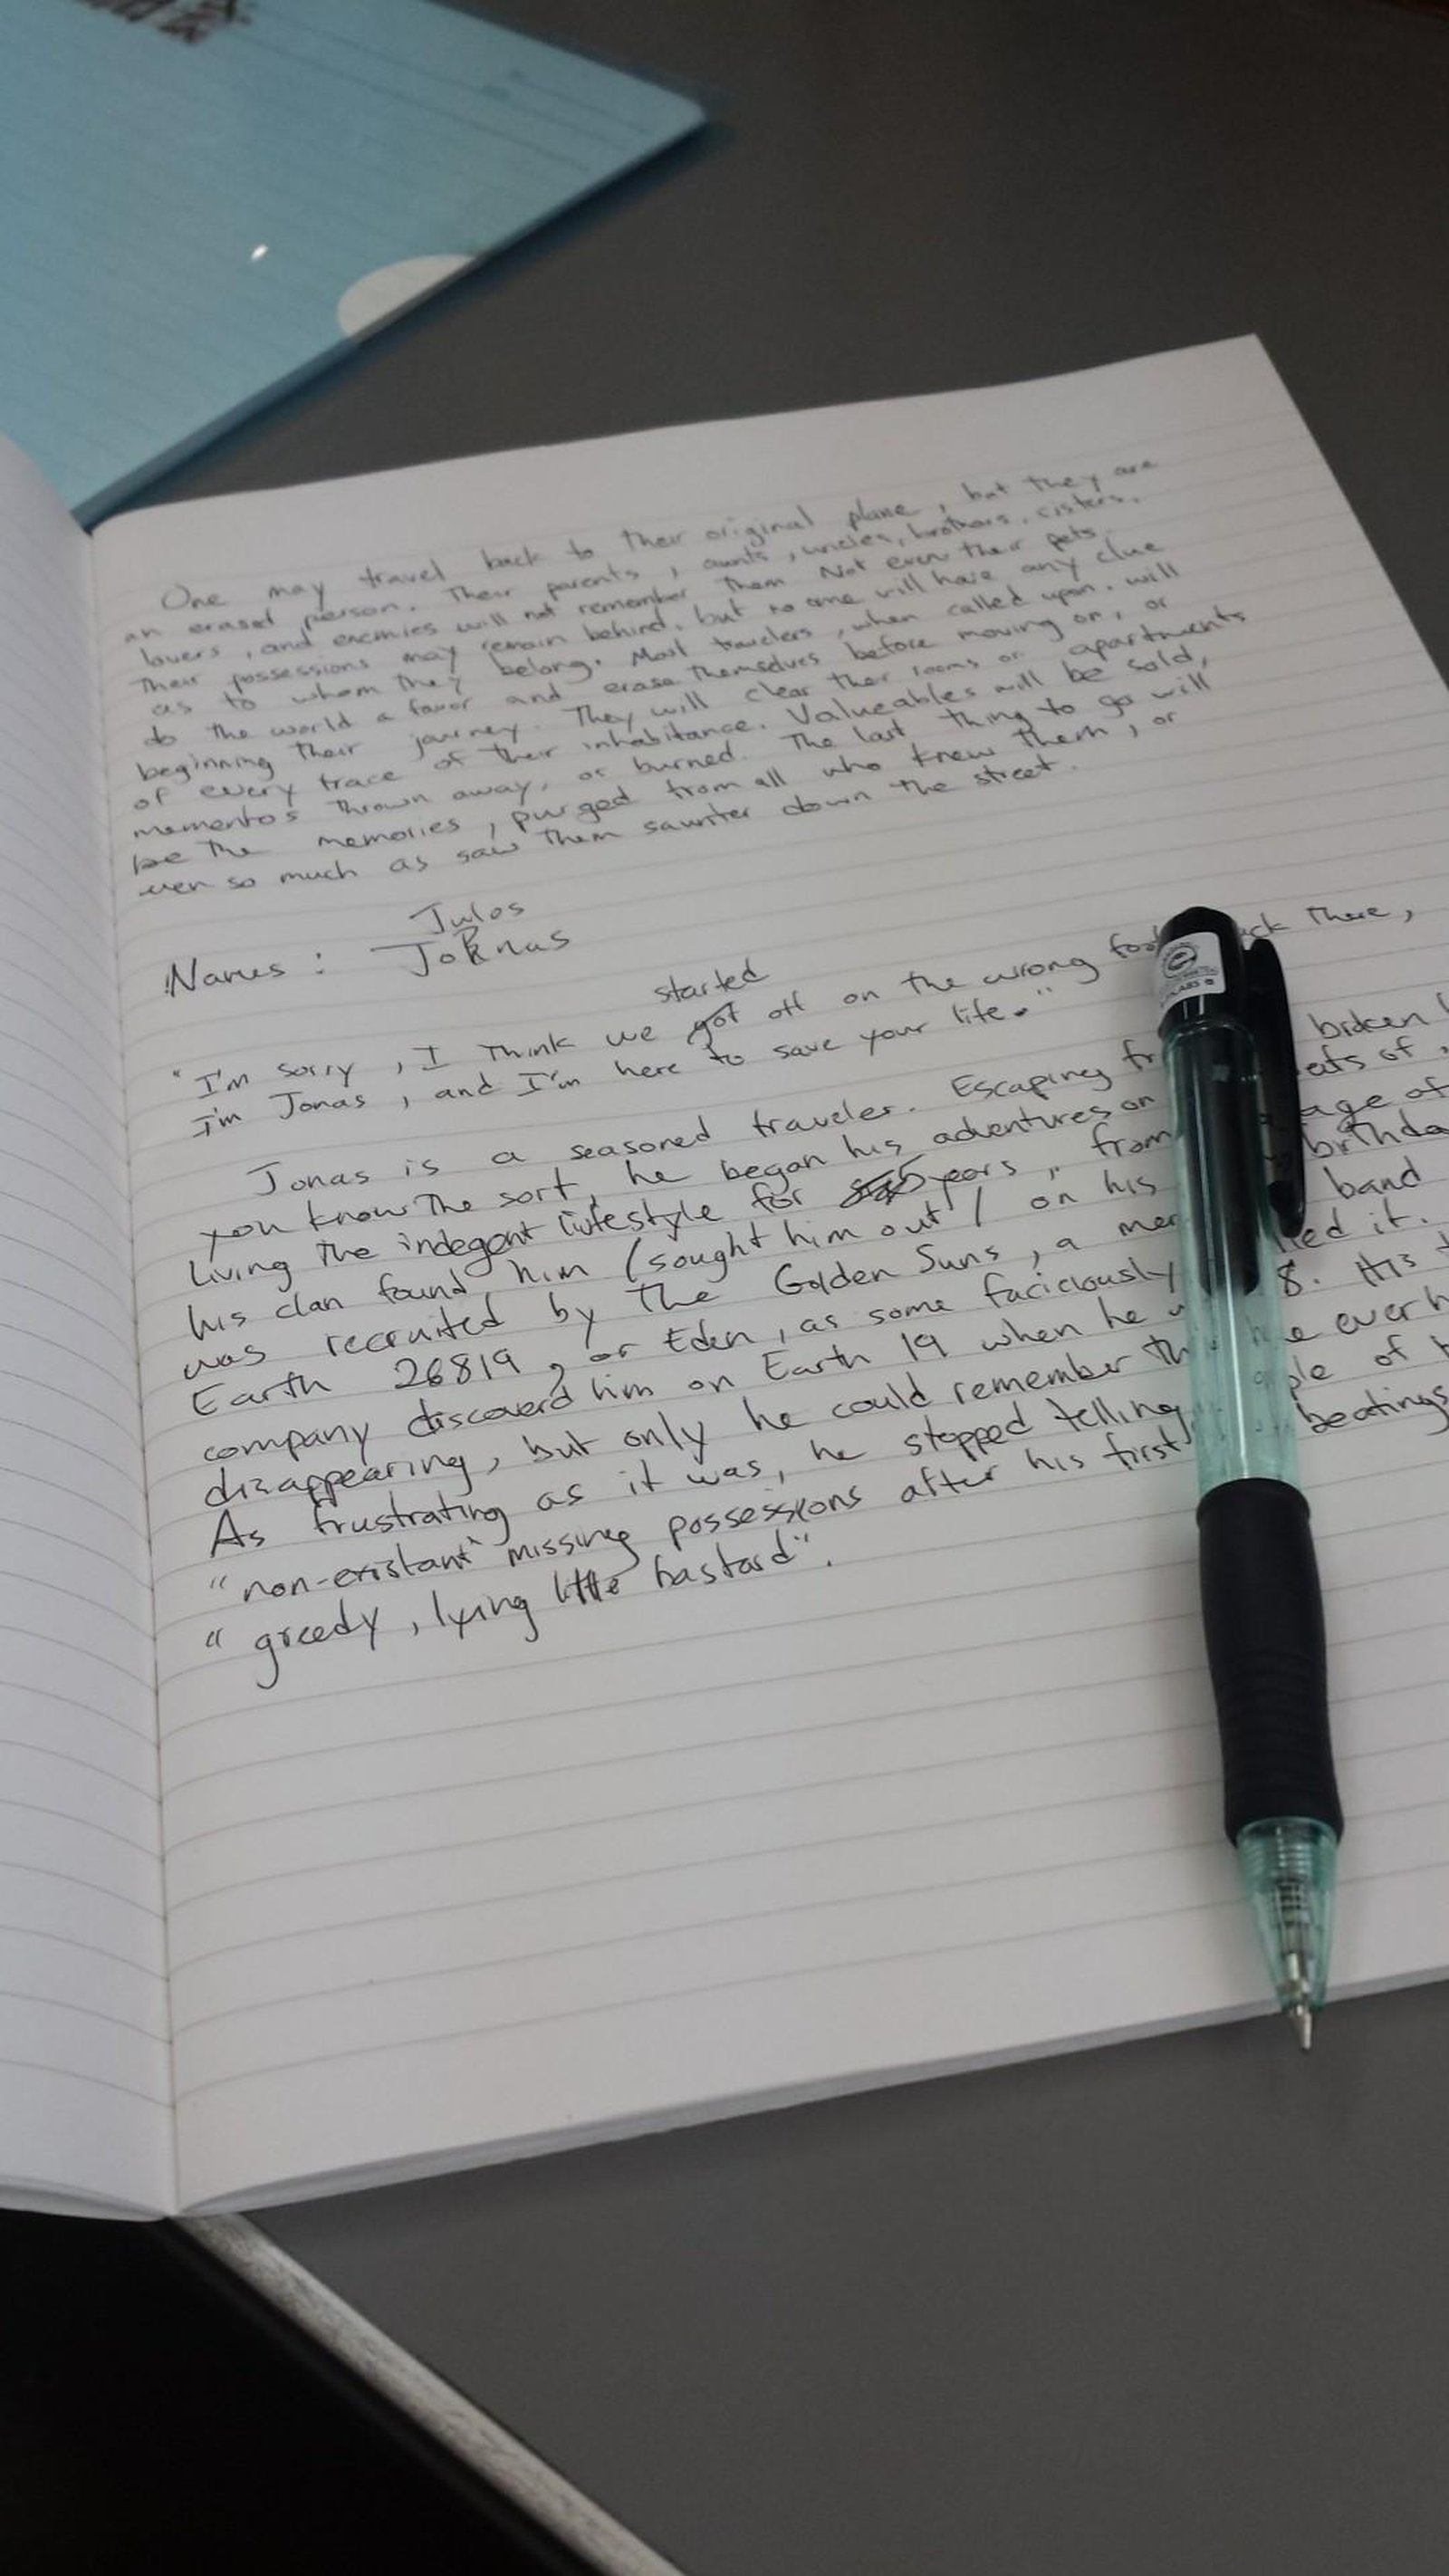 One may travel back to their original plane, but they are
an erased person. Their parents, aunts, uncles, brothers, sisters,
lovers, and enemies will not remember them Not even their pets.
Their possessions may remain behind, but no one will have any clue
as to whom they belong. Most travelers, when called upon, will
do the world a favor and erase themselves before moving on, or
beginning their journey. They will clear ther rooms or apartments
of every trace of their inhabitance. Valueables will be sold,
mementos thrown away, or burned. The last thing to go will
be the memories, purged from all who knew them, or
ever so much as saw them saunter down the street.
Julos
Names: Jonas
started
"I'm sorry, I think we got off on the wrong there,
I'm Jonas, and I'm here to save your life."
Jonas is a seasoned traveler. Escaping broken
you know the sort, he began his adventures on of
Living the indegent lifestyle for years, from age of
his clan found him (sought him out / on his birthda
was recruited by the Golden Suns, a band
Earth 26819, or Eden, as some faciciously it.
company discoverd him on Earth 19 when he 8. His
disappearing, but only he could remember ever
As frustrating as it was, he stopped telling of
"non-existant" missing possessions after his first beatings
"greedy, lying little bastard".